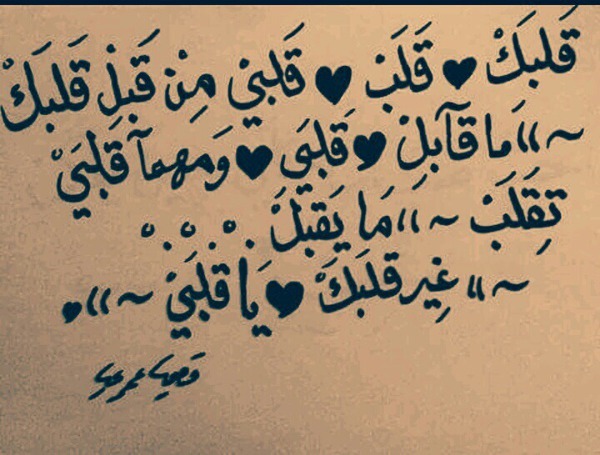 قَلبَكْ ♥ قَلَبْ ♥ قَلبيْ مِنْ قَبِلْ قَلبَكْ
~ »مَا قآبلْ ♥ قَلبَيِ ♥ وَمهمآ قَلبَيْ
تِقَلَبْ ~ »مَا يَقبَلْ . . . . .
~ » غِير قَلبَكْ ♥ يَا قلبَيْ ~ «« •